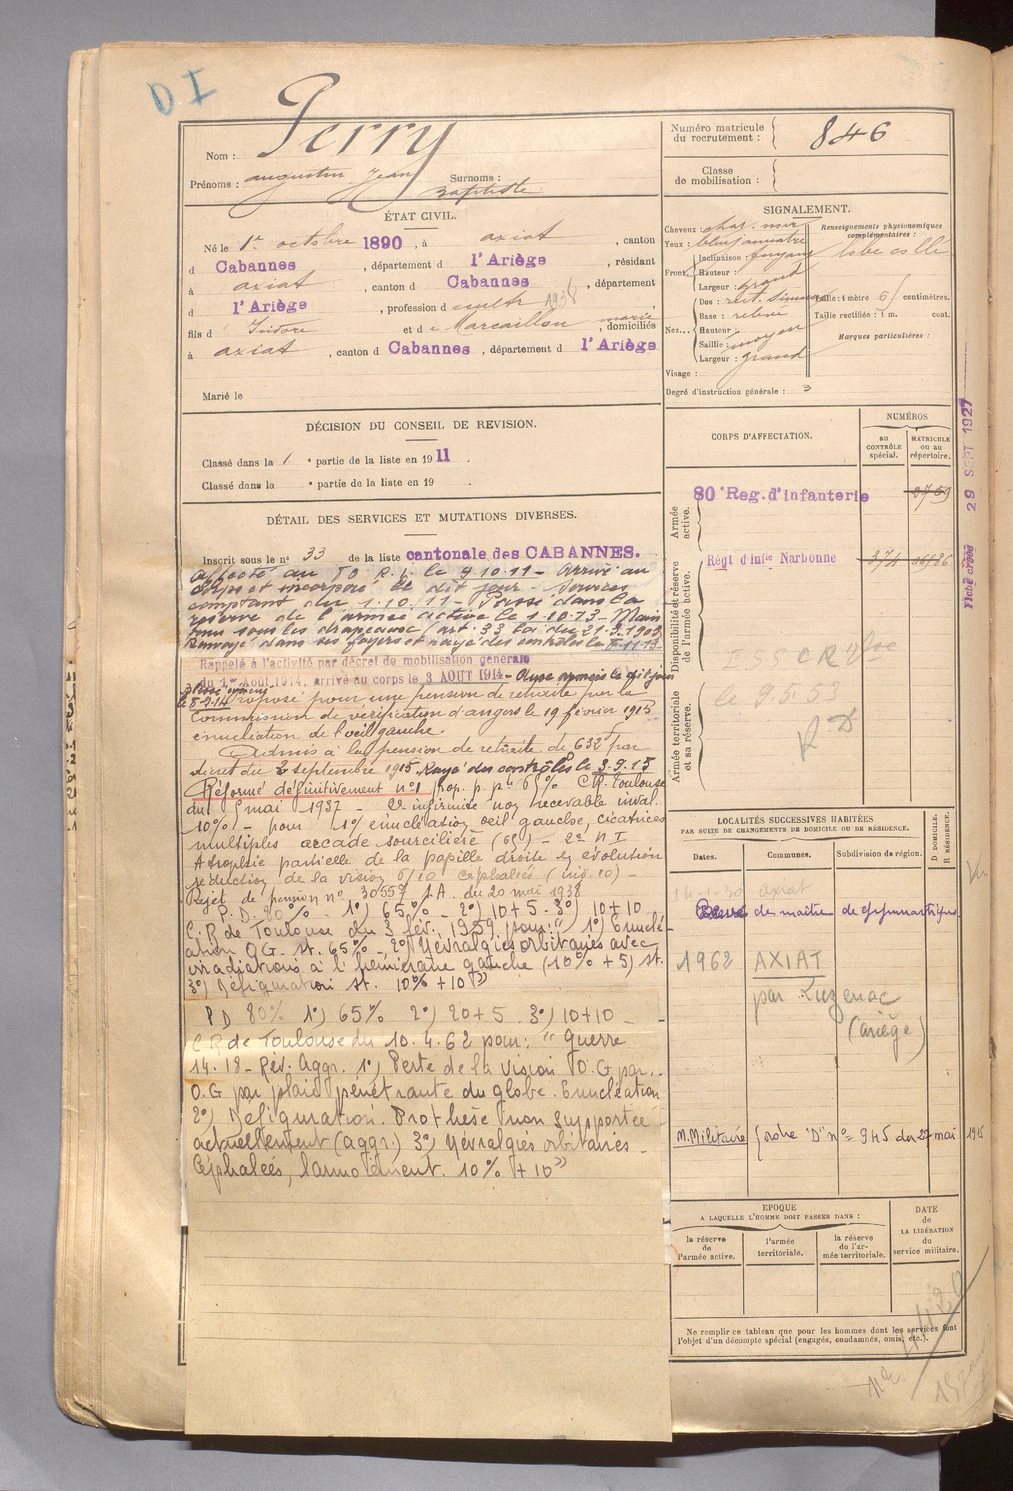 D I
Nom : Perry
Prénoms : Augustin Jean Surnoms :
Baptiste
ÉTAT CIVIL.
Né le 1er octobre 1890, à axiat, canton
d Cabannes, département d l'Ariège, résidant
à axiat, canton d Cabannes, département
d l'Ariège, profession d cultr 1938
fils d' Isidore et de Marcaillou marie, domiciliés
à axiat, canton d Cabannes, département d l'Ariège
Marié le
DÉCISION DU CONSEIL DE REVISION.
Classé dans la 1 e partie de la liste en 1911.
Classé dans la e partie de la liste en 19 .
DÉTAIL DES SERVICES ET MUTATIONS DIVERSES.
Inscrit sous le n° 33 de la liste cantonale des CABANNES.
Affecté au 80 R.I. le 9.10.11 - Arrivé au
corps et incorporé le dit jour - Services
comptant du 1.10.11 - Passé dans la
réserve de l'armée active le 1.10.13 - Main
tenu sous les drapeaux (art. 33 loi du 21.3.1905
Renvoyé dans ses foyers et rayé des contrôles le 8.11.13.
Rappelé à l'activité par décret de mobilisation générale
du 1er Août 1914, arrivé au corps le 3 AOUT 1914 - Aux armées le dit jour
Blessé
le 8-9-14 Proposé pour une pension de retraite par la
Commission de vérification d'angers le 19 février 1915
énucléation de l'œil gauche.
Admis à la pension de retraite de 632f par
décret du 2 septembre 1915. Rayé des contrôles le 3.9.15
Réformé définitivement n°1 prop. p. pte 65% C.R. Toulouse
du 5 mai 1937 - 2e infirmité non recevable inval.
10% - pour 1°/ énucléation œil gauche, cicatrices
multiples arcade sourcilière (65) - 2e N I
Atrophie partielle de la papille droite en évolution
réduction de la vision 6/10 céphalées (inf. 10) -
Rejet de pension n° 30557 I.A. du 20 mai 1938
P.D. 80% 1°) 65% - 2°) 10+5 - 3°) 10+10
C.R de Toulouse du 3 fév. 1959 pour: "1°) Enuclé-
ation O.G. st. 65% - 2°) Névralgies orbitaires avec
irradiations à l'hémicrâne gauche (10% + 5) st.
3°) Défiguration st. 10% + 10"
P D 80% 1°) 65% 2°) 20+5 3°) 10+10 -
C.R de Toulouse du 10.4.62 pour: "Guerre
14.18 - Rév. Aggr. 1°) Perte de la vision O.G par
O.G par plaie pénétrante du globe. Enucléation
2°) Défiguration. Prothèse non supportée
actuellement (aggr.) 3°) Névralgies orbitaires -
Céphalées, larmoiement. 10% + 10"
Numéro matricule du recrutement : 846
Classe de mobilisation :
SIGNALEMENT.
Cheveux : chat. noir
Yeux :
Front : Inclinaison : fuyant
Hauteur :
Largeur : grand
Nez : Dos : rect. sinueux
Base : relevé
Hauteur :
Saillie : moyen
Largeur : grand
Renseignements physionomiques
complémentaires :
Taille : 1 mètre 61 centimètres.
Taille rectifiée : 1 m. cent.
Marques particulières :
Visage :
Degré d'instruction générale : 3
CORPS D'AFFECTATION.
NUMÉROS
au CONTRÔLE spécial.
MATRICULE ou au répertoire.
Armée active.
80e Reg. d'infanterie 2759
Disponibilité et réserve de l'armée active.
Régt d'infie Narbonne 374
Armée territoriale et sa réserve.
le 9.5.53
R D
LOCALITÉS SUCCESSIVES HABITÉES
PAR SUITE DE CHANGEMENTS DE DOMICILE OU DE RÉSIDENCE.
Dates. Communes. Subdivision de région.
D DOMICILE.
R RÉSIDENCE.
axiat
de maître de gymnastique.
1962 AXIAT
par Luzenac
(ariège)
M. Militaire 945 du 27 mai 1915
EPOQUE
A LAQUELLE L'HOMME DOIT PASSER DANS :
la réserve de l'armée active.
l'armée territoriale.
la réserve de l'armée territoriale.
DATE de LA LIBÉRATION du service militaire.
Ne remplir ce tableau que pour les hommes dont les services font
l'objet d'un décompte spécial (engagés, condamnés, omis, etc.).
Fiche créée 29 SEPT 1927
Vu